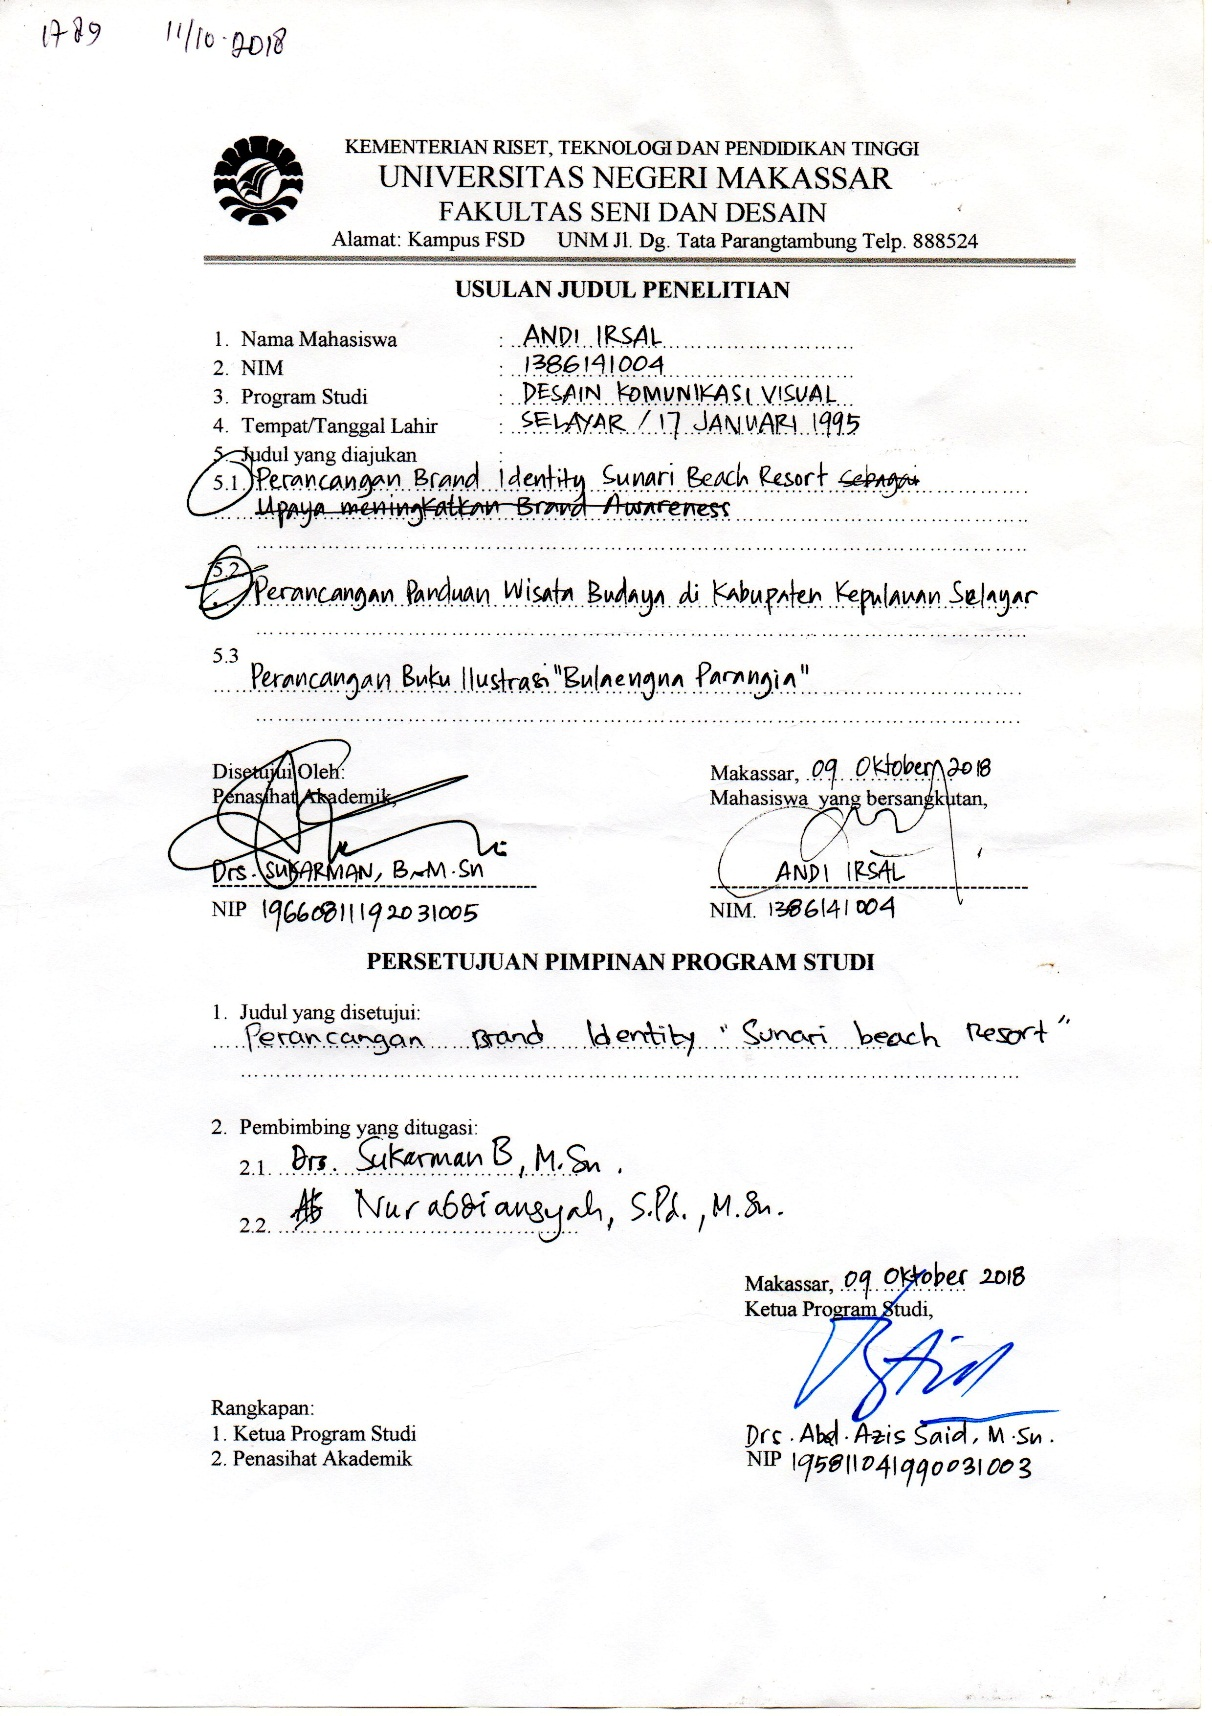 1789 11/10-2018
KEMENTERIAN RISET, TEKNOLOGI DAN PENDIDIKAN TINGGI
UNIVERSITAS NEGERI MAKASSAR
FAKULTAS SENI DAN DESAIN
Alamat: Kampus FSD UNM Jl. Dg. Tata Parangtambung Telp. 888524
USULAN JUDUL PENELITIAN
1. Nama Mahasiswa : ANDI IRSAL
2. NIM : 1386141004
3. Program Studi : DESAIN KOMUNIKASI VISUAL
4. Tempat/Tanggal Lahir : SELAYAR / 17 JANUARI 1995
5. Judul yang diajukan :
5.1 Perancangan Brand Identity Sunari Beach Resort sebagai
Upaya meningkatkan Brand Awareness
5.2
Perancangan Panduan Wisata Budaya di Kabupaten Kepulauan Selayar
5.3
Perancangan Buku Ilustrasi "Bulaengna Parangia"
Disetujui Oleh:
Penasihat Akademik,
Drs. SUKARMAN, B. M.Sn
NIP 196608111992031005
Makassar, 09 Oktober 2018
Mahasiswa yang bersangkutan,
ANDI IRSAL
NIM. 1386141004
PERSETUJUAN PIMPINAN PROGRAM STUDI
1. Judul yang disetujui:
Perancangan Brand Identity "Sunari beach Resort"
2. Pembimbing yang ditugasi:
2.1. Drs. Sukarman B, M.Sn.
2.2. Nurabdiansyah, S.Pd., M.Sn.
Makassar, 09 Oktober 2018
Ketua Program Studi,
Drs. Abd. Azis Said, M.Sn.
NIP 195811041990031003
Rangkapan:
1. Ketua Program Studi
2. Penasihat Akademik